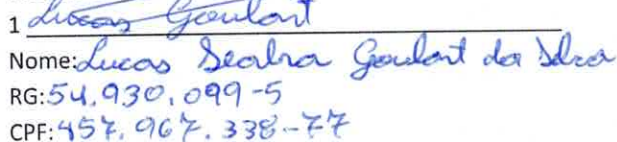 1 Lucas Goulart
Nome: Lucas Seabra Goulart da Silva
RG: 54.930.099-5
CPF: 457.967.338-77